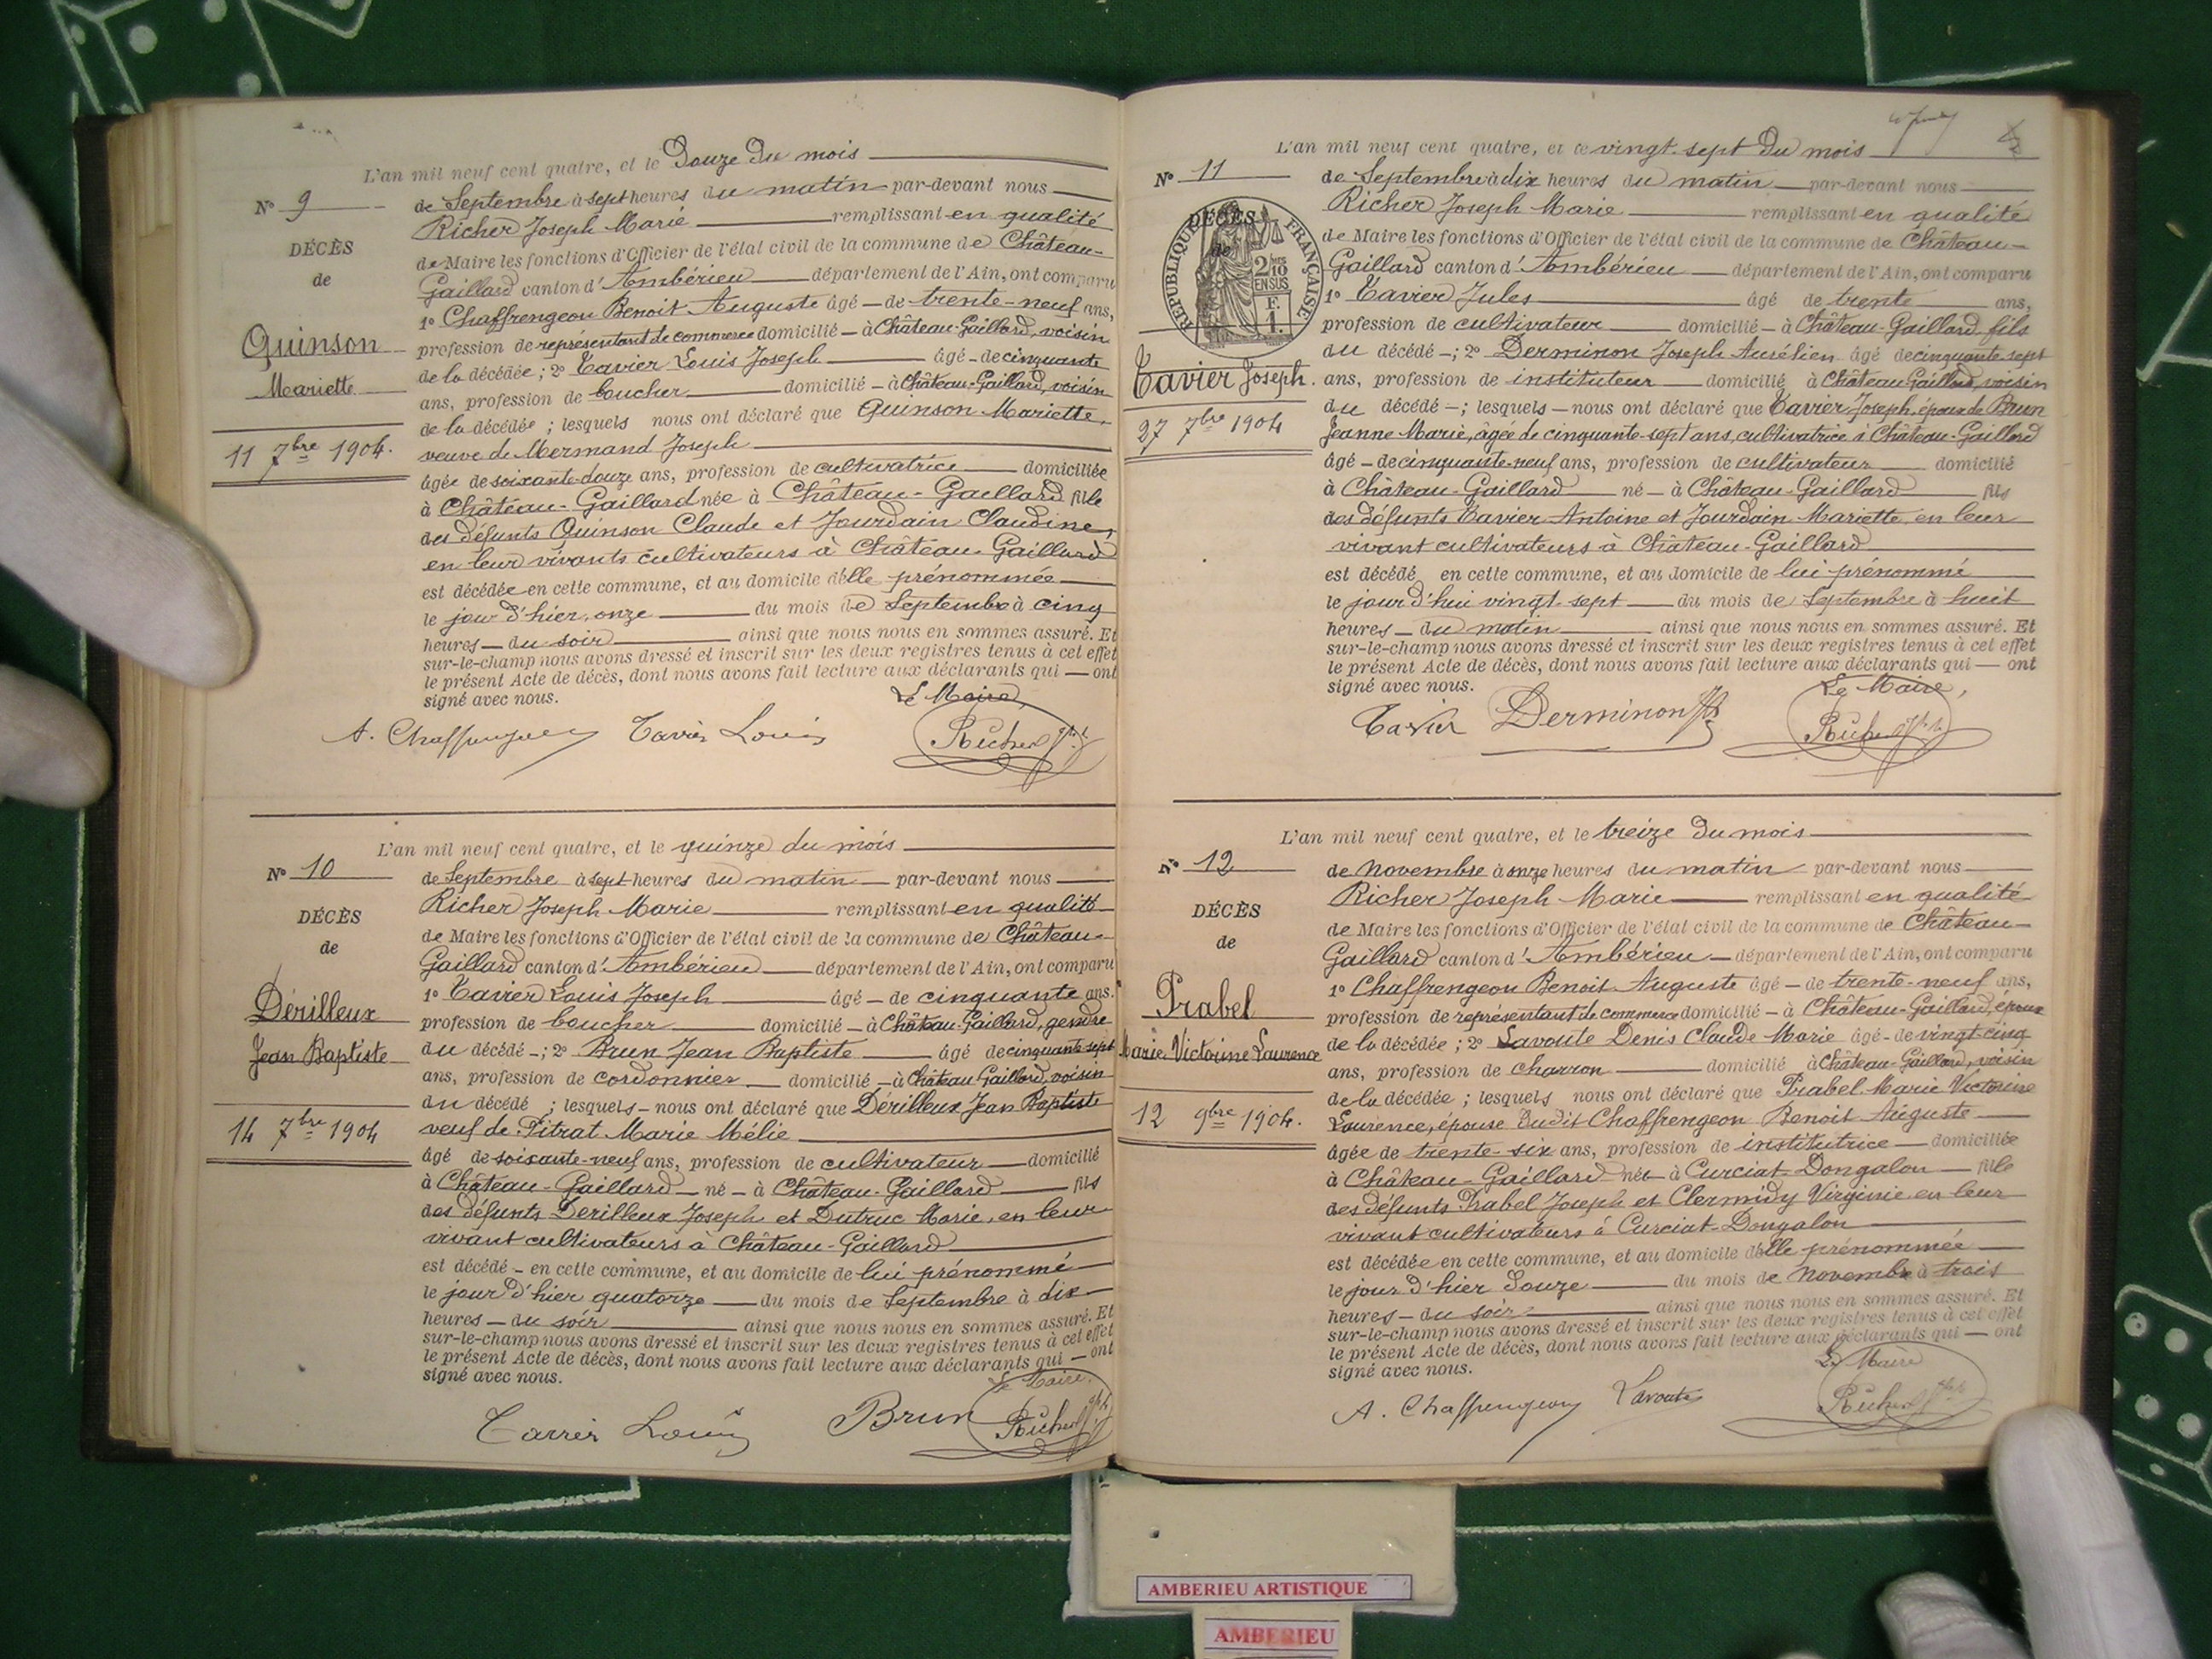 L'an mil neuf cent quatre, et le Douze du mois
N° 9
de Septembre à sept heures du matin par-devant nous
Richer Joseph Marie remplissant en qualité
DÉCÈS
de Maire les fonctions d'Officier de l'état civil de la commune de Château-
de
Gaillard canton d'Ambérieu département de l'Ain, ont comparu
1° Chaffrengeon Benoit Auguste âgé de trente-neuf ans,
Quinson
profession de représentant de commerce domicilié à Château-Gaillard, voisin
Mariette
de la décédée ; 2° Tavier Louis Joseph âgé de cinquante
ans, profession de boucher domicilié à Château-Gaillard, voisin
de la décédée ; lesquels nous ont déclaré que Quinson Mariette,
11 7bre 1904.
veuve de Mermand Joseph
âgée de soixante-douze ans, profession de cultivatrice domiciliée
à Château-Gaillard née à Château-Gaillard fille
des défunts Quinson Claude et Jourdain Claudine,
en leur vivants cultivateurs à Château-Gaillard
est décédée en cette commune, et au domicile d'elle prénommée
le jour d'hier, onze du mois de Septembre à cinq
heures du soir ainsi que nous nous en sommes assuré. Et
sur-le-champ nous avons dressé et inscrit sur les deux registres tenus à cet effet
le présent Acte de décès, dont nous avons fait lecture aux déclarants qui ont
signé avec nous.
Le Maire,
A. Chaffrengeon Tavier Louis Richer Jph
L'an mil neuf cent quatre, et le quinze du mois
N° 10
de Septembre à sept heures du matin par-devant nous
Richer Joseph Marie remplissant en qualité
DÉCÈS
de Maire les fonctions d'Officier de l'état civil de la commune de Château-
de
Gaillard canton d'Ambérieu département de l'Ain, ont comparu
1° Tavier Louis Joseph âgé de cinquante ans.
Dérilleux
profession de boucher domicilié à Château-Gaillard, gendre
Jean Baptiste
du décédé ; 2° Brun Jean Baptiste âgé de cinquante-sept
ans, profession de cordonnier domicilié à Château Gaillard, voisin
du décédé ; lesquels nous ont déclaré que Dérilleux Jean Baptiste
14 7bre 1904
veuf de Pitrat Marie Mélie
âgé de soixante-neuf ans, profession de cultivateur domicilié
à Château-Gaillard né à Château-Gaillard fils
des défunts Derilleux Joseph et Dutruc Marie, en leur
vivant cultivateurs à Château-Gaillard
est décédé en cette commune, et au domicile de lui prénommé
le jour d'hier quatorze du mois de Septembre à dix
heures du soir ainsi que nous nous en sommes assuré. Et
sur-le-champ nous avons dressé et inscrit sur les deux registres tenus à cet effet
le présent Acte de décès, dont nous avons fait lecture aux déclarants qui ont
signé avec nous.
Le Maire.
Tavier Louis Brun Richer Jph
L'an mil neuf cent quatre, et le vingt-sept du mois
N° 11
de Septembre à dix heures du matin par-devant nous
Richer Joseph Marie remplissant en qualité
DÉCÈS
de
RÉPUBLIQUE FRANÇAISE
2/10 EN SUS
F.
1.
de Maire les fonctions d'Officier de l'état civil de la commune de Château-
Gaillard canton d'Ambérieu département de l'Ain, ont comparu
1° Tavier Jules âgé de trente ans,
profession de cultivateur domicilié à Château-Gaillard fils
du décédé ; 2° Derminon Joseph Aurélien âgé de cinquante-sept
Tavier Joseph.
ans, profession de instituteur domicilié à Château-Gaillard, voisin
du décédé ; lesquels nous ont déclaré que Tavier Joseph, époux de Brun
27 7bre 1904
Jeanne-Marie, âgée de cinquante-sept ans, cultivatrice à Château-Gaillard
âgé de cinquante-neuf ans, profession de cultivateur domicilié
à Château-Gaillard né à Château-Gaillard fils
des défunts Tavier Antoine et Jourdain Mariette, en leur
vivant cultivateurs à Château-Gaillard
est décédé en cette commune, et au domicile de lui prénommé
le jour d'hui vingt-sept du mois de Septembre à huit
heures du matin ainsi que nous nous en sommes assuré. Et
sur-le-champ nous avons dressé et inscrit sur les deux registres tenus à cet effet
le présent Acte de décès, dont nous avons fait lecture aux déclarants qui ont
signé avec nous.
Le Maire,
Tavier Derminon Richer Jph
L'an mil neuf cent quatre, et le treize du mois
N° 12
de Novembre à onze heures du matin par-devant nous
Richer Joseph Marie remplissant en qualité
DÉCÈS
de Maire les fonctions d'Officier de l'état civil de la commune de Château-
de
Gaillard canton d'Ambérieu département de l'Ain, ont comparu
1° Chaffrengeon Benoit Auguste âgé de trente-neuf ans,
Prabel
profession de représentant de commerce domicilié à Château-Gaillard, époux
Marie Victorine Laurence
de la décédée ; 2° Lavoute Denis Claude Marie âgé de vingt-cinq
ans, profession de charron domicilié à Château-Gaillard, voisin
de la décédée ; lesquels nous ont déclaré que Prabel Marie Victorine
12 9bre 1904.
Laurence, épouse dudit Chaffrengeon Benoit Auguste
âgée de trente-six ans, profession de institutrice domiciliée
à Château-Gaillard née à Curciat-Dongalon fille
des défunts Prabel Joseph et Clermidy Virginie en leur
vivant cultivateurs à Curciat-Dongalon
est décédée en cette commune, et au domicile d'elle prénommée
le jour d'hier douze du mois de Novembre à trois
heures du soir ainsi que nous nous en sommes assuré. Et
sur-le-champ nous avons dressé et inscrit sur les deux registres tenus à cet effet
le présent Acte de décès, dont nous avons fait lecture aux déclarants qui ont
signé avec nous.
Le Maire
A. Chaffrengeon Lavoute Richer Jph
AMBERIEU ARTISTIQUE
AMBERIEU